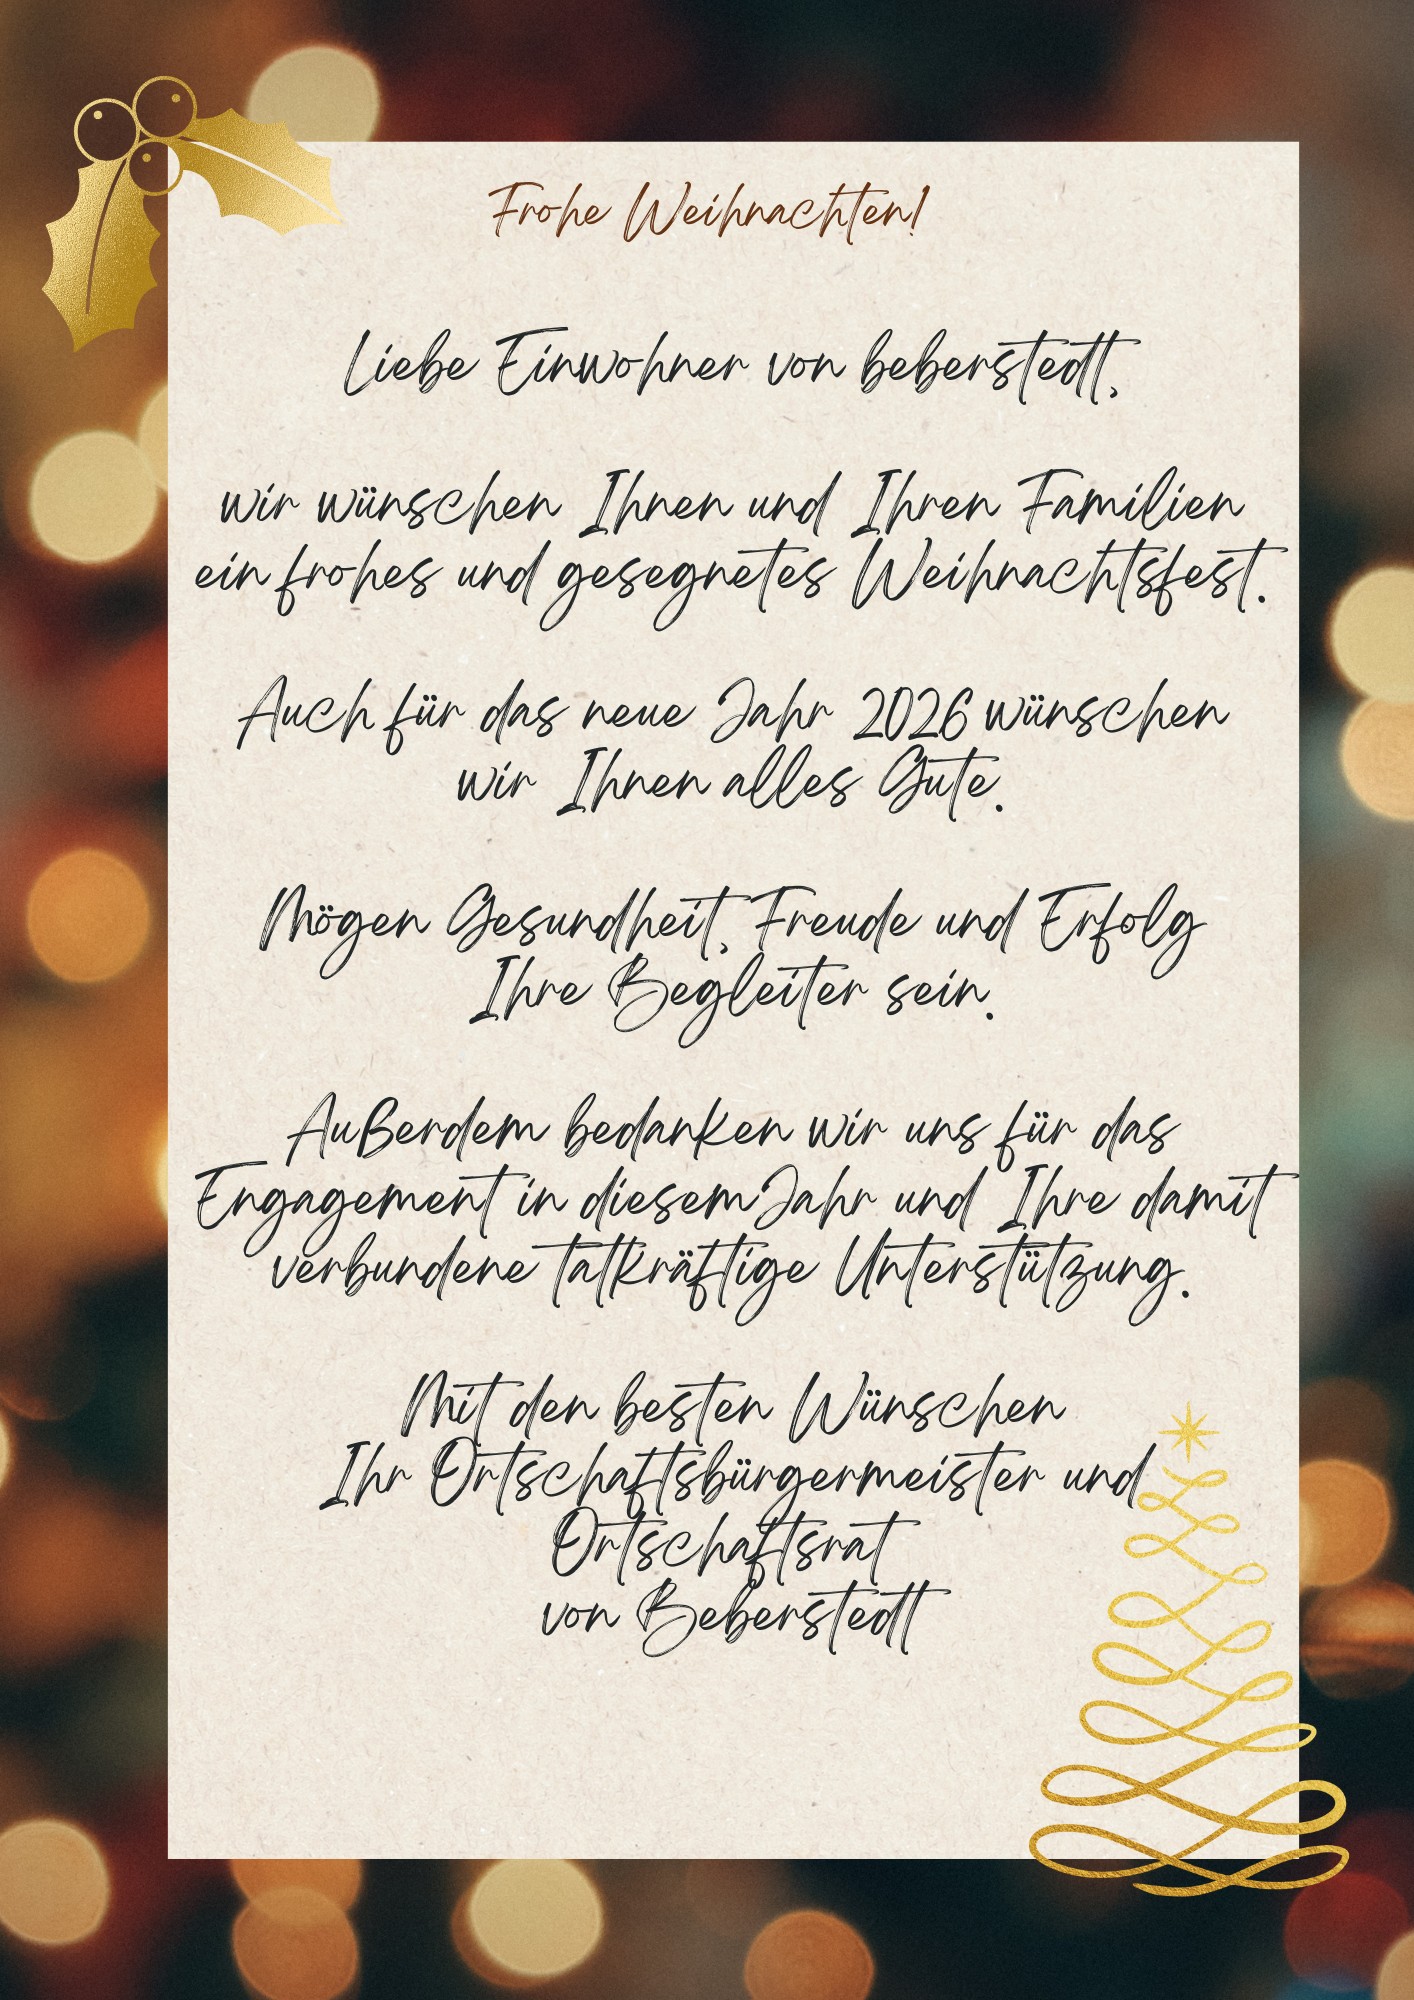 Frohe Weihnachten!
Liebe Einwohner von beberstedt,
wir wünschen Ihnen und Ihren Familien
ein frohes und gesegnetes Weihnachtsfest.
Auch für das neue Jahr 2026 wünschen
wir Ihnen alles Gute.
Mögen Gesundheit, Freude und Erfolg
Ihre Begleiter sein.
Außerdem bedanken wir uns für das
Engagement in diesem Jahr und Ihre damit
verbundene tatkräftige Unterstützung.
Mit den besten Wünschen
Ihr Ortschaftsbürgermeister und
Ortschaftsrat
von Beberstedt